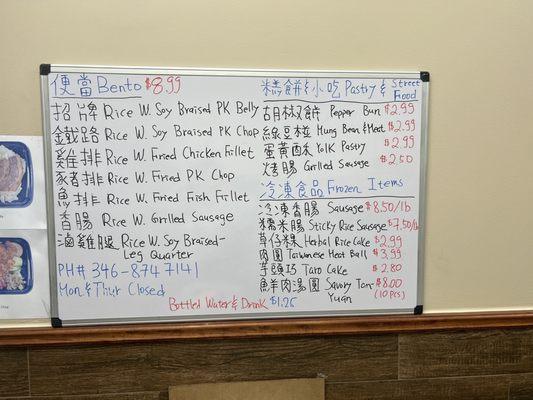 便當 Bento $8.99
招牌 Rice W. Soy Braised PK Belly
鐵路 Rice W. Soy Braised PK Chop
雞排 Rice W. Fried Chicken Fillet
豬排 Rice W. Fried PK Chop
魚排 Rice W. Fried Fish Fillet
香腸 Rice W. Grilled Sausage
滷雞腿 Rice W. Soy Braised-
Leg Quarter
PH# 346-874 7141
Mon & Thur Closed
糕餅 & 小吃 Pastry & Street
Food
胡椒餅 Pepper Bun $2.99
綠豆椪 Mung Bean & Meat $2.99
蛋黃酥 Yolk Pastry $2.99
烤腸 Grilled Sausage $2.50
冷凍食品 Frozen Items
冷凍香腸 Sausage $8.50/lb
糯米腸 Sticky Rice Sausage $7.50/lb
草仔粿 Herbal Rice Cake $2.99
肉圓 Taiwanese Meat Ball $3.99
芋頭巧 Taro Cake $2.80
鮮肉湯圓 Savory Tan- $8.00
Yuan (10 pcs)
Bottled Water & Drink $1.25